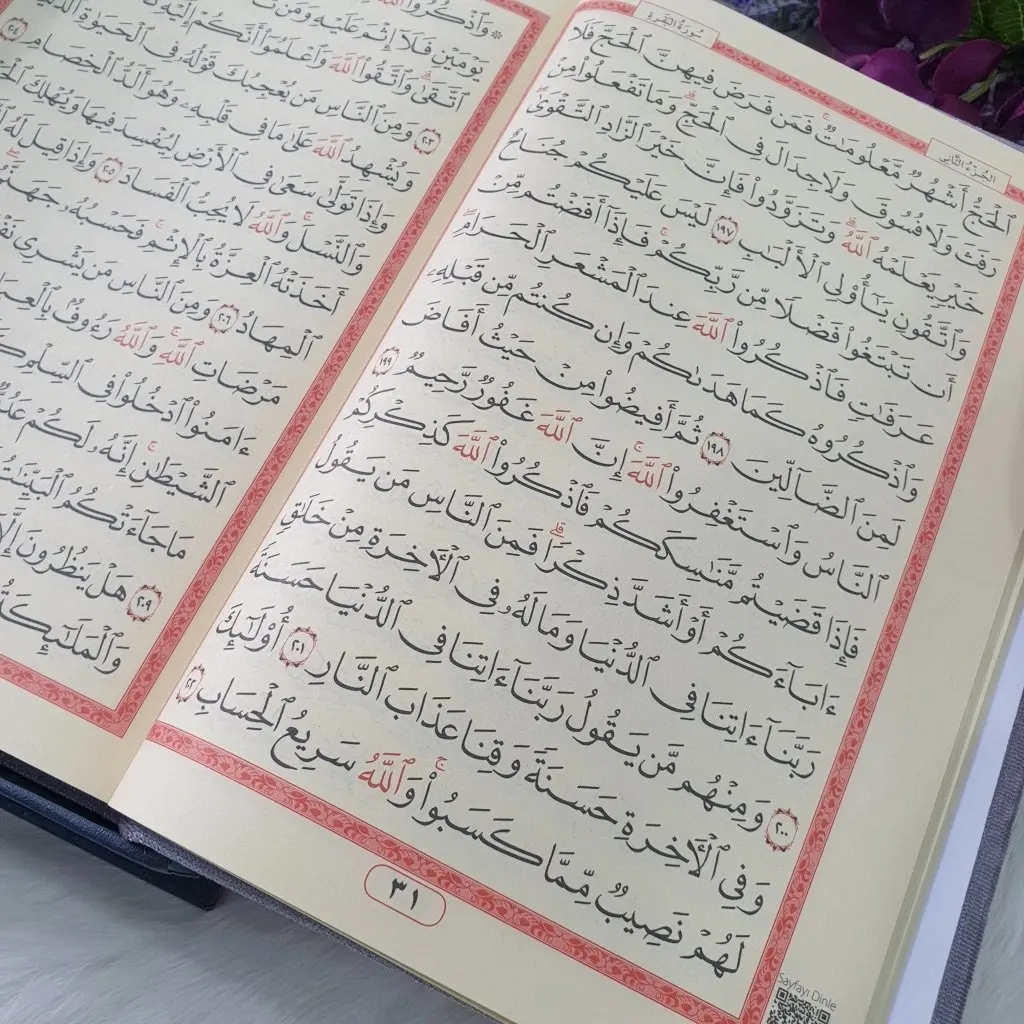 سُورَةُ البَقَرَةِ
الجُزْءُ الثَّانِي
ٱلْحَجُّ أَشْهُرٌ مَّعْلُومَٰتٌ ۚ فَمَن فَرَضَ فِيهِنَّ ٱلْحَجَّ فَلَا
رَفَثَ وَلَا فُسُوقَ وَلَا جِدَالَ فِى ٱلْحَجِّ ۗ وَمَا تَفْعَلُوا۟ مِنْ
خَيْرٍ يَعْلَمْهُ ٱللَّهُ ۗ وَتَزَوَّدُوا۟ فَإِنَّ خَيْرَ ٱلزَّادِ ٱلتَّقْوَىٰ ۚ
وَٱتَّقُونِ يَٰٓأُو۟لِى ٱلْأَلْبَٰبِ ١٩٧ لَيْسَ عَلَيْكُمْ جُنَاحٌ
أَن تَبْتَغُوا۟ فَضْلًا مِّن رَّبِّكُمْ ۚ فَإِذَآ أَفَضْتُم مِّنْ
عَرَفَٰتٍ فَٱذْكُرُوا۟ ٱللَّهَ عِندَ ٱلْمَشْعَرِ ٱلْحَرَامِ ۖ
وَٱذْكُرُوهُ كَمَا هَدَىٰكُمْ وَإِن كُنتُم مِّن قَبْلِهِۦ
لَمِنَ ٱلضَّآلِّينَ ١٩٨ ثُمَّ أَفِيضُوا۟ مِنْ حَيْثُ أَفَاضَ
ٱلنَّاسُ وَٱسْتَغْفِرُوا۟ ٱللَّهَ ۚ إِنَّ ٱللَّهَ غَفُورٌ رَّحِيمٌ ١٩٩
فَإِذَا قَضَيْتُم مَّنَٰسِكَكُمْ فَٱذْكُرُوا۟ ٱللَّهَ كَذِكْرِكُمْ
ءَابَآءَكُمْ أَوْ أَشَدَّ ذِكْرًا ۗ فَمِنَ ٱلنَّاسِ مَن يَقُولُ
رَبَّنَآ ءَاتِنَا فِى ٱلدُّنْيَا وَمَا لَهُۥ فِى ٱلْءَاخِرَةِ مِنْ خَلَٰقٍ
٢٠٠ وَمِنْهُم مَّن يَقُولُ رَبَّنَآ ءَاتِنَا فِى ٱلدُّنْيَا حَسَنَةً
وَفِى ٱلْءَاخِرَةِ حَسَنَةً وَقِنَا عَذَابَ ٱلنَّارِ ٢٠١ أُو۟لَٰٓئِكَ
لَهُمْ نَصِيبٌ مِّمَّا كَسَبُوا۟ ۚ وَٱللَّهُ سَرِيعُ ٱلْحِسَابِ ٢٠٢
٣١
Sayfayı Dinle
۞ وَٱذْكُرُوا۟ ٱللَّهَ
يَوْمَيْنِ فَلَآ إِثْمَ عَلَيْهِ وَمَن
ٱتَّقَىٰ ۗ وَٱتَّقُوا۟ ٱللَّهَ وَٱعْلَمُوٓا۟ أَنَّكُمْ إِلَيْهِ
٢٠٣ وَمِنَ ٱلنَّاسِ مَن يُعْجِبُكَ قَوْلُهُۥ فِى ٱلْحَيَوٰةِ
وَيُشْهِدُ ٱللَّهَ عَلَىٰ مَا فِى قَلْبِهِۦ وَهُوَ أَلَدُّ ٱلْخِصَامِ ٢٠٤
وَإِذَا تَوَلَّىٰ سَعَىٰ فِى ٱلْأَرْضِ لِيُفْسِدَ فِيهَا وَيُهْلِكَ
وَٱلنَّسْلَ ۗ وَٱللَّهُ لَا يُحِبُّ ٱلْفَسَادَ ٢٠٥ وَإِذَا قِيلَ لَهُ
أَخَذَتْهُ ٱلْعِزَّةُ بِٱلْإِثْمِ ۚ فَحَسْبُهُۥ
ٱلْمِهَادُ ٢٠٦ وَمِنَ ٱلنَّاسِ مَن يَشْرِى
مَرْضَاتِ ٱللَّهِ ۗ وَٱللَّهُ رَءُوفٌۢ
ءَامَنُوا۟ ٱدْخُلُوا۟ فِى ٱلسِّلْمِ
ٱلشَّيْطَٰنِ ۚ إِنَّهُۥ لَكُمْ
مَا جَآءَتْكُمُ ٱلْبَيِّنَٰتُ
٢٠٩ هَلْ يَنظُرُونَ
وَٱلْمَلَٰٓئِكَةُ